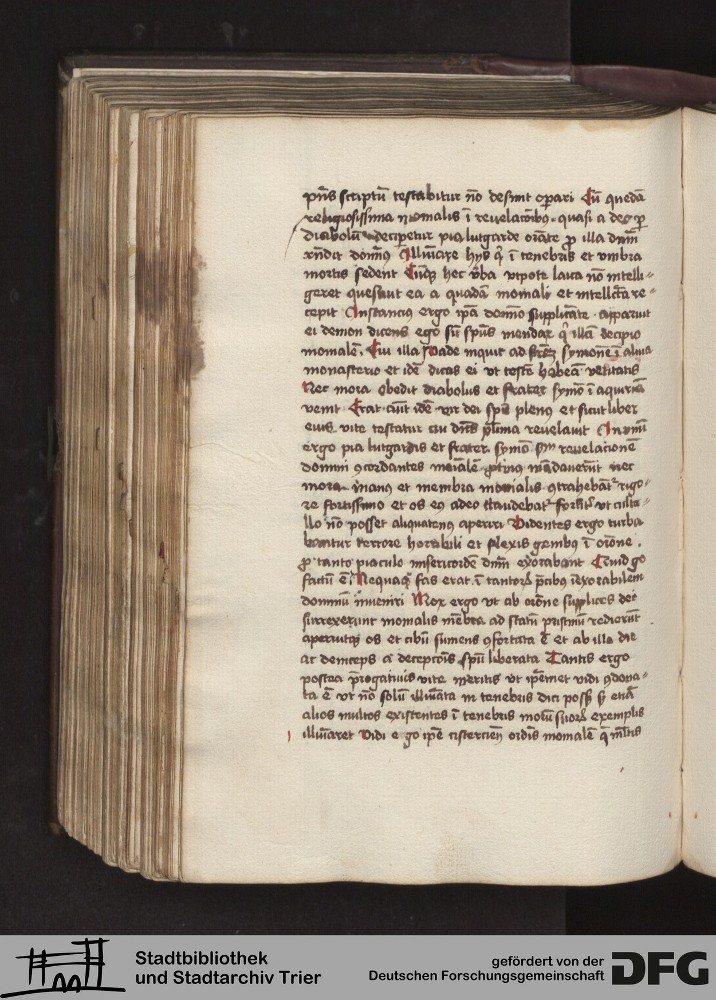 pn̄s scriptū testabitur nō desinit oꝑari Cū quedā
religiosissima monialis ī reuelacōnibꝰ quasi a deo ꝑ
diabolū deciꝑetur pia lutgarde orāte ꝓ illa dn̄m
rn̄dit domīꝰ Illūīare hijs qͥ ī tenebris et vmbra
mortis sedent Cūqꝫ hec v̄ba vtpote laica nō intelli
geret quesiuit ea a quadā moniali et intellectū re
cepit Instancius ergo ip̄a domīo supplicāte apparuit
ei demon dicens ego sū spūs mendax qͥ illā decipio
monialē. Cui illa Vade inquit ad frēꝫ symonē ī alnia
monasterio et idē dicas ei vt testē habeā veritatis
Nec mora obedit diabolus et frater symō ī aquiriā
venit Erat aūt idē vir dei spū plenus et sicut liber
eius vite testatur cui dn̄s pl̄ima reuelauit
ergo pia lutgardis et frater symon sm̄ reuelacionē
domini ꝯcordantes moīalē ꝓtinus mādauerūt nec
mora manus et membra monialis ꝯtrahebātͬ rigo
re fortissimo et os eꝰ adeo claudebatͬ fortitͬ vt culte
llo nō posset aliquatenꝰ aperiri Videntes ergo turba
bantur terrore horribili et flexis genibꝰ ī orōne
ꝓ tanto piaculo misericordē dn̄m exorabant Quid go
factū ē. Nequaqͣ fas erat ī tantorꝝ p̄cibꝰ īexorabilem
dominū inueniri Mox ergo vt ab orōne supplices dei
surrexerunt monialis mēbra ad statū pristinū redierūt
aperuitqꝫ os et cibū sumens ꝯfortata ē et ab illa die
ac deinceps a decepcōis spū liberata Tantis ergo
postea p̄rogatiuis vite meritis vt ip̄emet vidi ꝯdona
ta ē vt nō solū illūīata in tenebris dici posset sꝫ etiā
alios multos existentes ī tenebris motū suorꝝ exemplis
illūīaret Vidi ego ip̄e cistercien̄ ordīs monialē
Stadtbibliothek
und Stadtarchiv Trier
gefördert von der
Deutschen Forschungsgemeinschaft
DFG